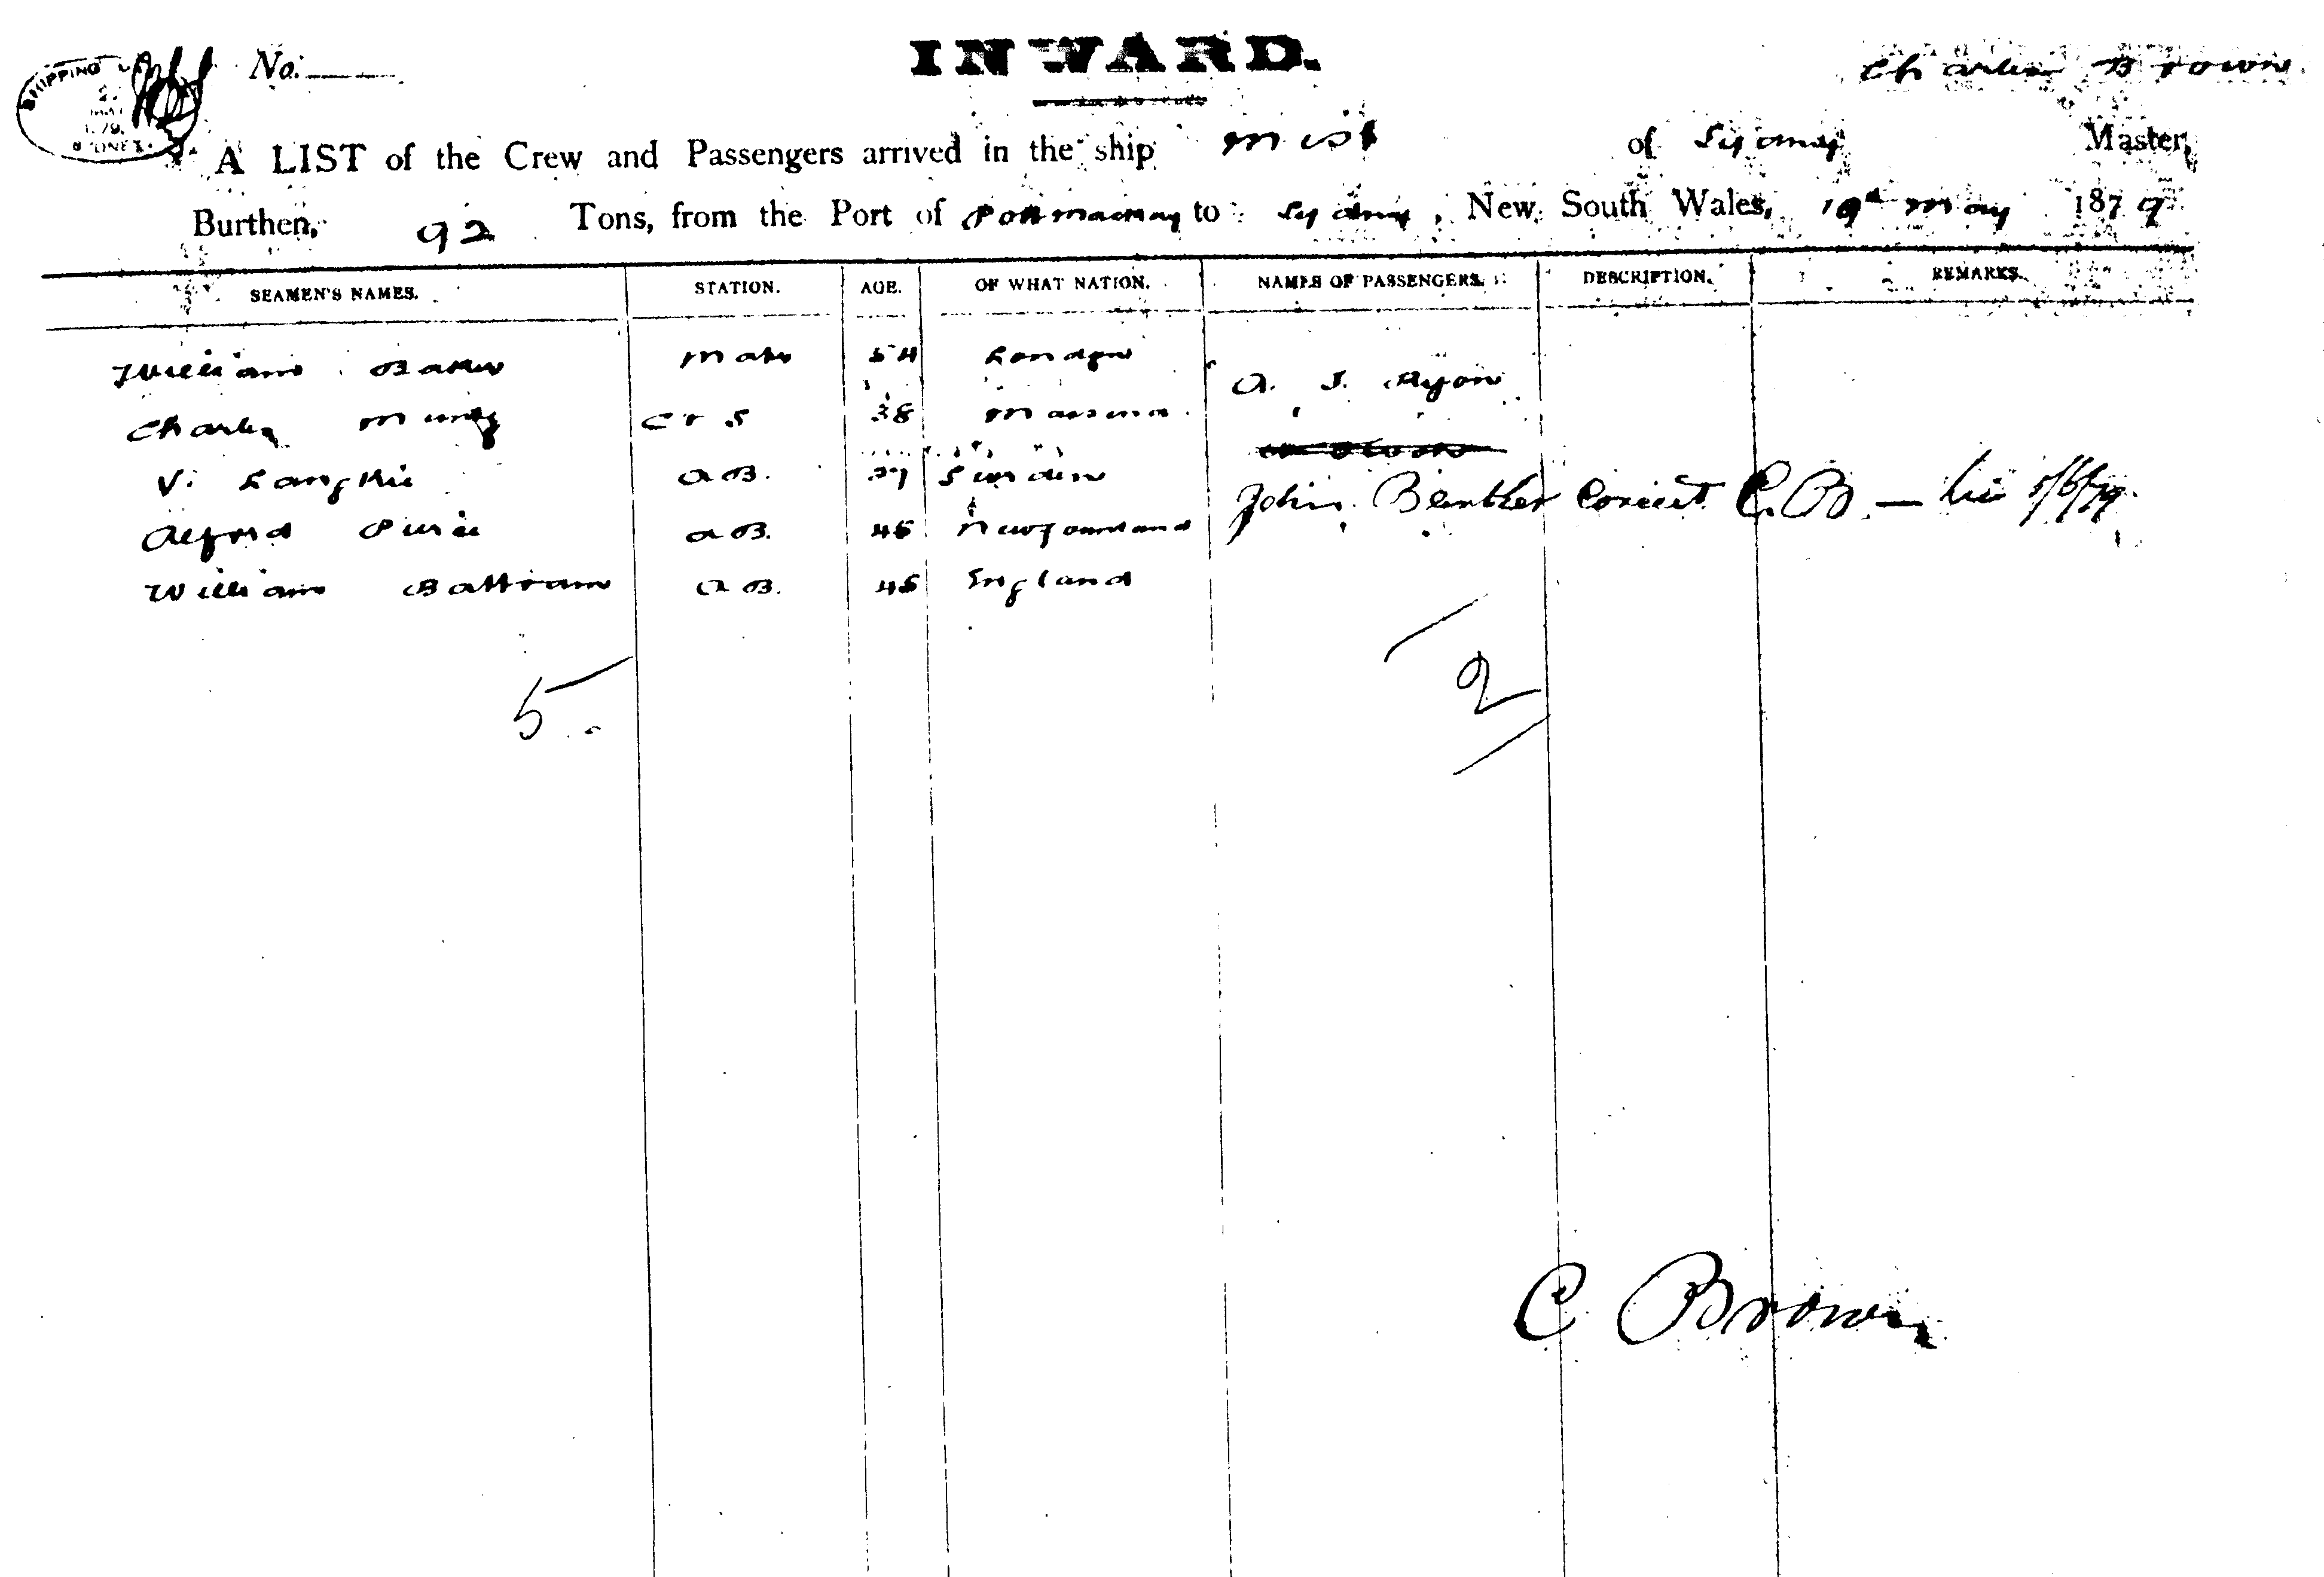 SHIPPING
MAY
No.
INWARD.
Charles Brown
A LIST of the Crew and Passengers arrived in the ship Mist of Sydney Master,
Burthen, 92 Tons, from the Port of Port Mackay to Sydney, New South Wales, 19th May 1879
SEAMEN'S NAMES. STATION. AGE. OF WHAT NATION. NAMES OF PASSENGERS. DESCRIPTION. REMARKS.
William Baker Mate 54 London A. J. Ryon
Charles C & S 38
V. AB. Sweden
John Convict C.B.
Alford AB. 45 Newfoundland
William Battram AB. 45 England
5
2
C Brown